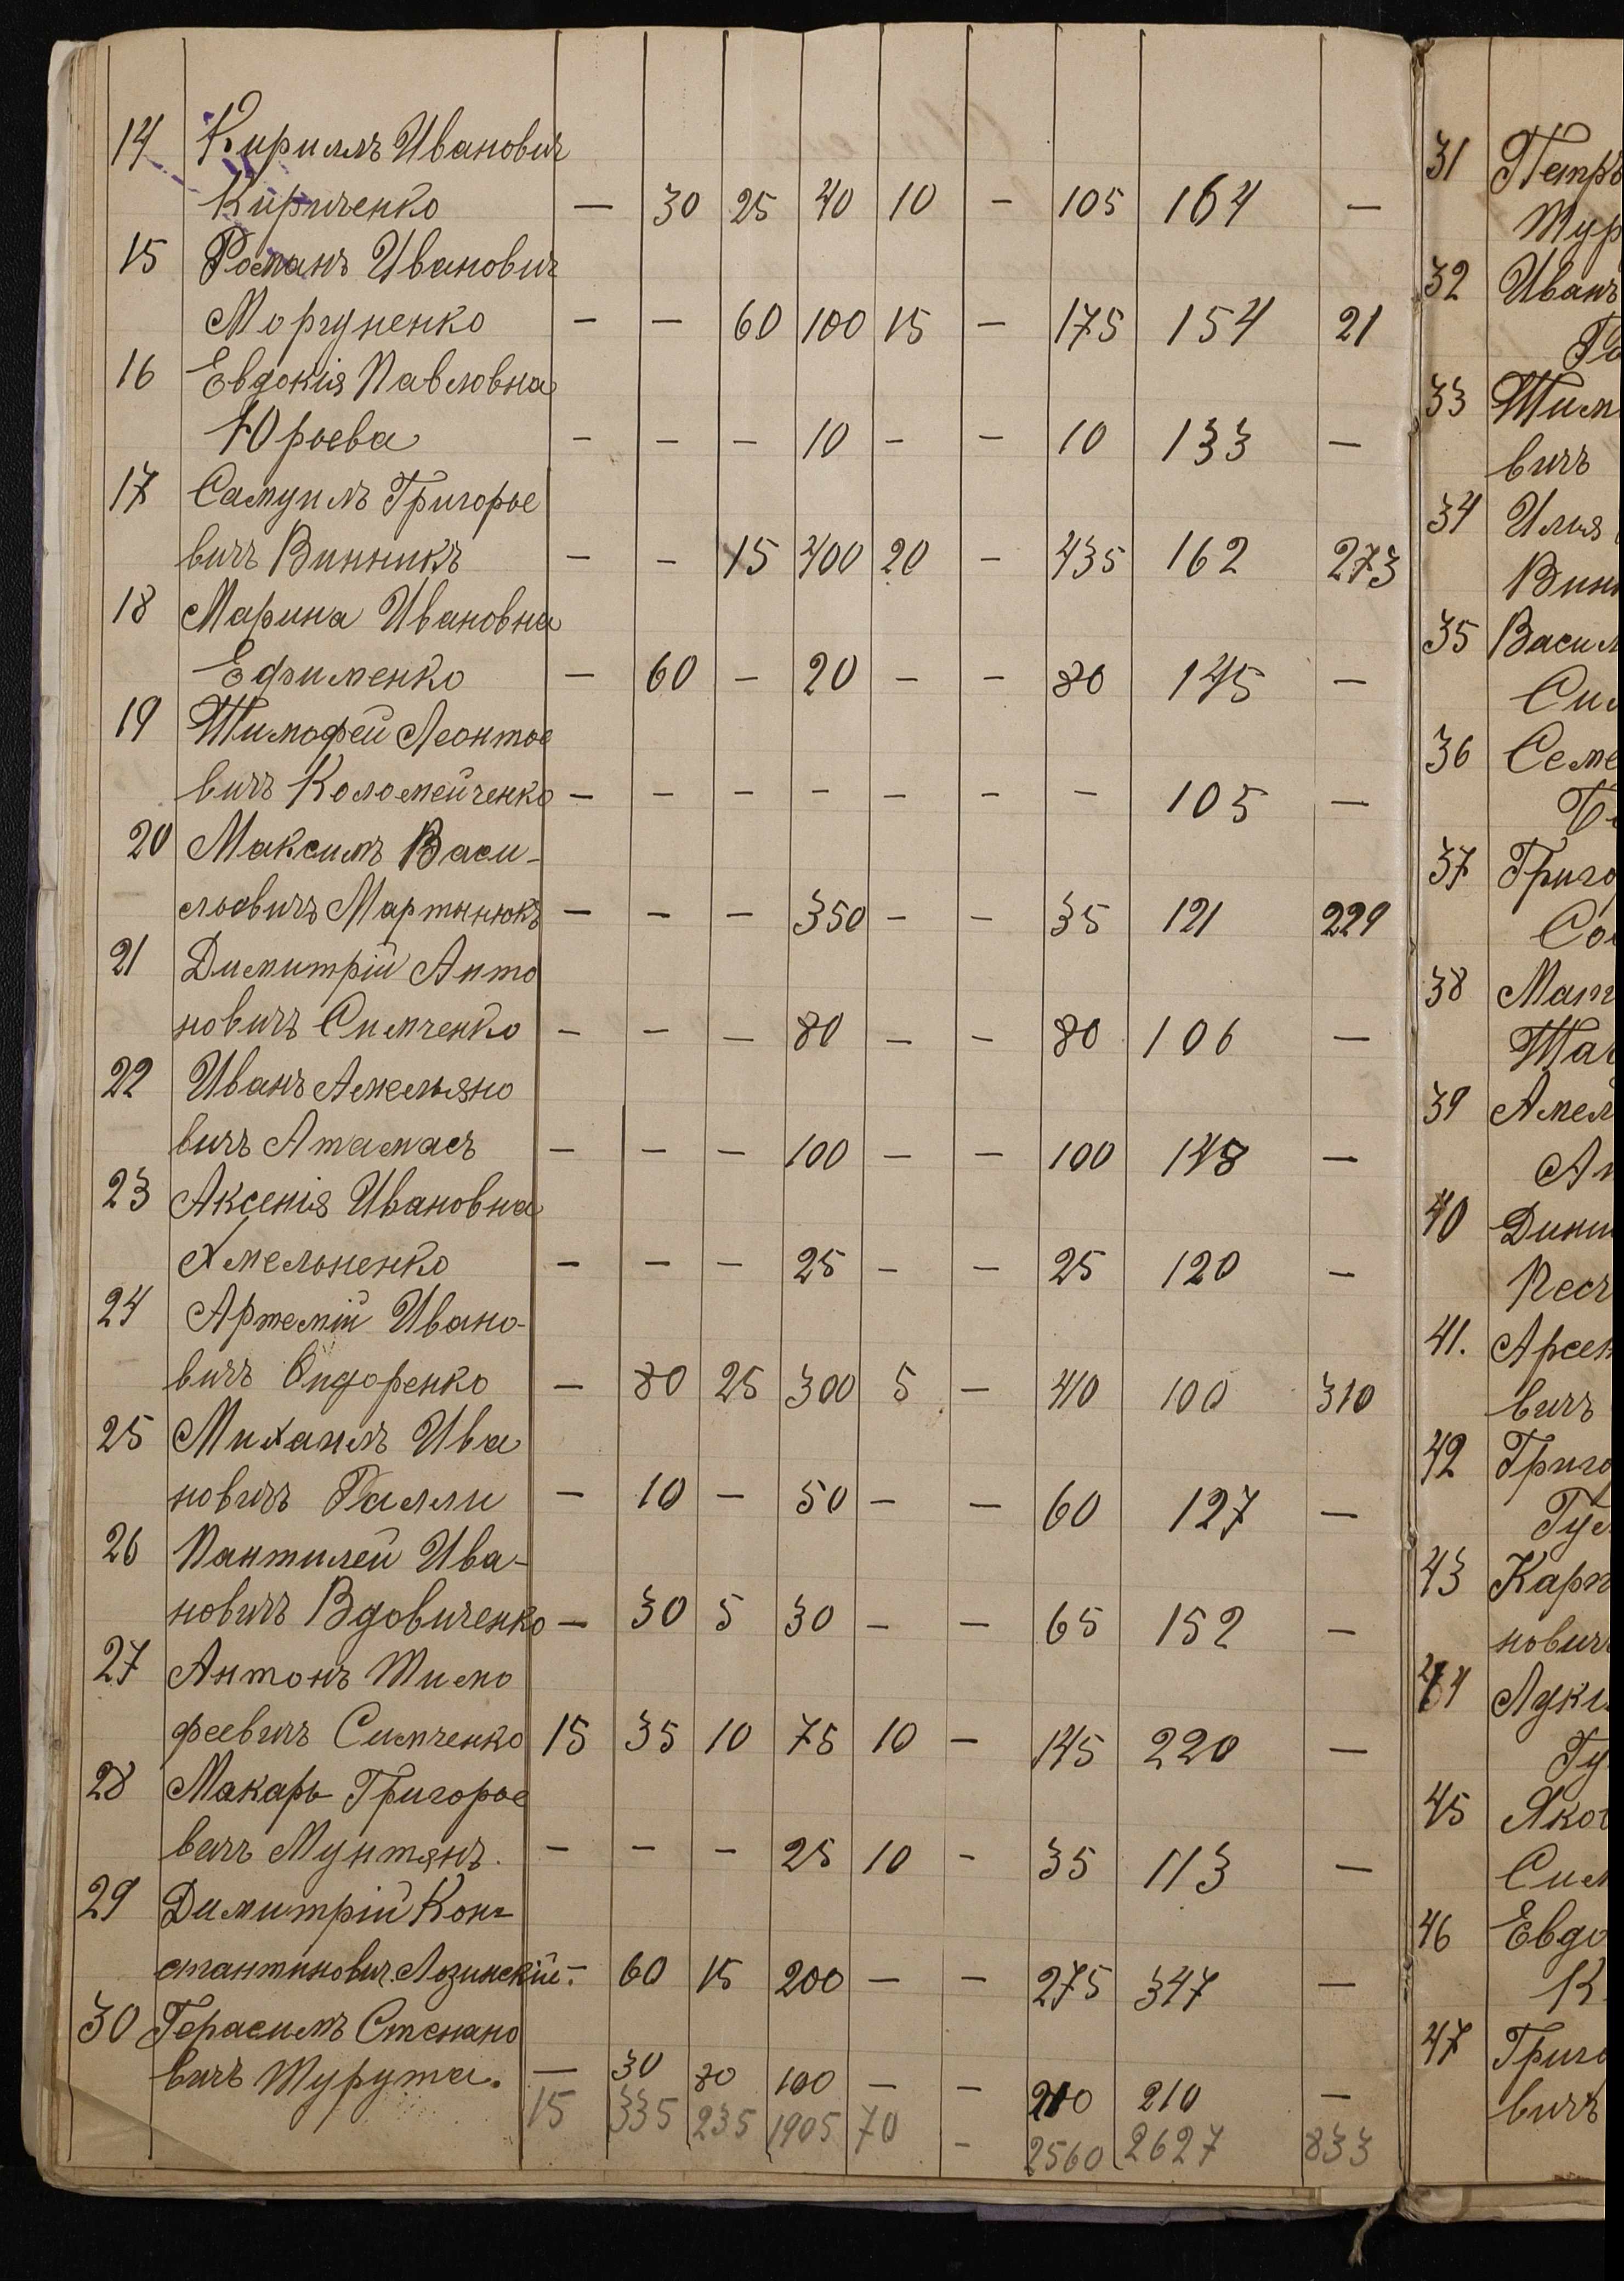 14 Кириллъ Ивановичъ
Кириченко — 30 25 40 10 — 105 164 —
15 Романъ Ивановичъ
Моргуненко — — 60 100 15 — 175 154 21
16 Евдокія Павловна
Юрьева — — — 10 — — 10 133 —
17 Самуилъ Григорье
вичъ Винникъ — — 15 400 20 — 435 162 273
18 Марина Ивановна
Ефименко — 60 — 20 — — 80 145 —
19 Тимофей Леонтье
вичъ Коломейченко — — — — — — — 105 —
20 Максимъ Васи-
льевичъ Мартынюкъ — — — 350 — — 35 121 229
21 Димитрій Анто
новичъ Симченко — — — 80 — — 80 106 —
22 Иванъ Амельяно
вичъ Атамасъ — — — 100 — — 100 148 —
23 Аксенія Ивановна
Хмельненко — — — 25 — — 25 120 —
24 Артемій Ивано-
вичъ Сидоренко — 80 25 300 5 — 410 100 310
25 Михаилъ Ива
новичъ Галли — 10 — 50 — — 60 127 —
26 Пантилей Ива-
новичъ Вдовиченко — 30 5 30 — — 65 152 —
27 Антонъ Тимо
феевичъ Симченко 15 35 10 75 10 — 145 220 —
28 Макаръ Григорье
вичъ Мунтянъ. — — — 25 10 — 35 113 —
29 Димитрій Кон=
стантиновичъ Лозинскій. — 60 15 200 — — 275 347 —
30 Герасимъ Степано
вичъ Шурута. — 30 80 100 — — 210 210 —
15 335 235 1905 70 — 2560 2627 833
31 Петръ
32 Иванъ
33 Тим
вичъ
34 Илья
Вин
35 Васил
Сим
36 Семе
37 Григо
38 Мат
39 Амел
40 Дими
41. Арсен
вичъ
42 Григо
43 Карп
новичъ
44 Луки
45 Яков
Сим
46 Евдо
К
47 Григо
вичъ